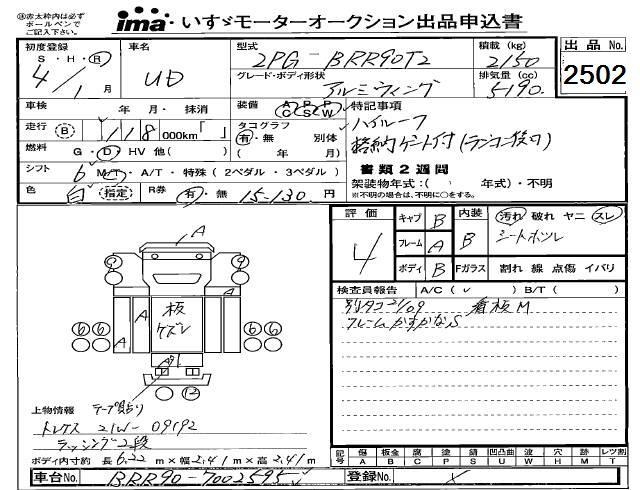 ㊟赤太枠内は必ず
ボールペンで
ご記入下さい。
ima・いすゞモーターオークション出品申込書
初度登録 車名 型式 積載 (kg) 出品No.
S・H・R UD 2PG-BRR90T2 2150 2502
4年/1月 グレード・ボディ形状 アルミウイング 排気量 (cc) 5190
車検 年 月・抹消 装備 AC PS PW 特記事項
走行 B 118,000km「 」 タコグラフ 有・無 別体 ハイルーフ
燃料 G・D・HV 他( ) ( 年 月) 格納ゲート付(ランコー後刀)
シフト 6 M/T・A/T・特殊(2ペダル・3ペダル) 書類2週間
色 白 指定 R券 有・無 15-130円 架装物年式:( 年式)・不明
※不明の場合は、不明に○をする。
評価 4 キャブ B 内装 B 汚れ 破れ ヤニ スレ
フレーム A シートホツレ
ボディ B Fガラス 割れ 線 点傷 イバリ
検査員報告 A/C( ✓ ) B/T( )
別タコ 21/09 看板M
フレームかすかなS
A
9 9
A A
板
ケズレ
A
6 6 6 6
A
12
上物情報 テープ貼り
トレクス 21W-09192
ラッシング2段
ボディ内寸約 長6.22m×幅2.41m×高2.41m
記号 傷A 板金B 腐C 塗P 錆S 凹凸曲U 波W 穴H 跡M レツ割T
車台No. BRR90-7002595 登録No.